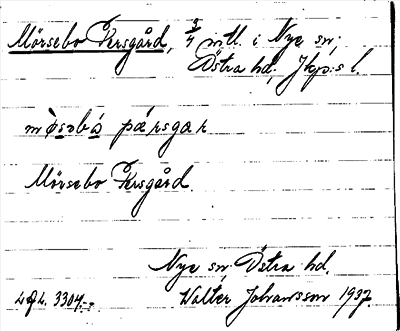 Mörsebo Persgård, 3/4 mtl. i Nye sn;
Östra hd, Jkp:s l.
mø̀səbó pǽrsgar
Mörsebo Persgård.
Nye sn; Östra hd,
3304
Walter Johansson 1937.